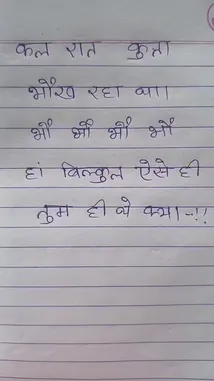 कल रात कुत्ता
भौंख रहा था।
भौं भौं भौं भौं
हां बिल्कुल ऐसे ही
तुम ही थे क्या।-!!